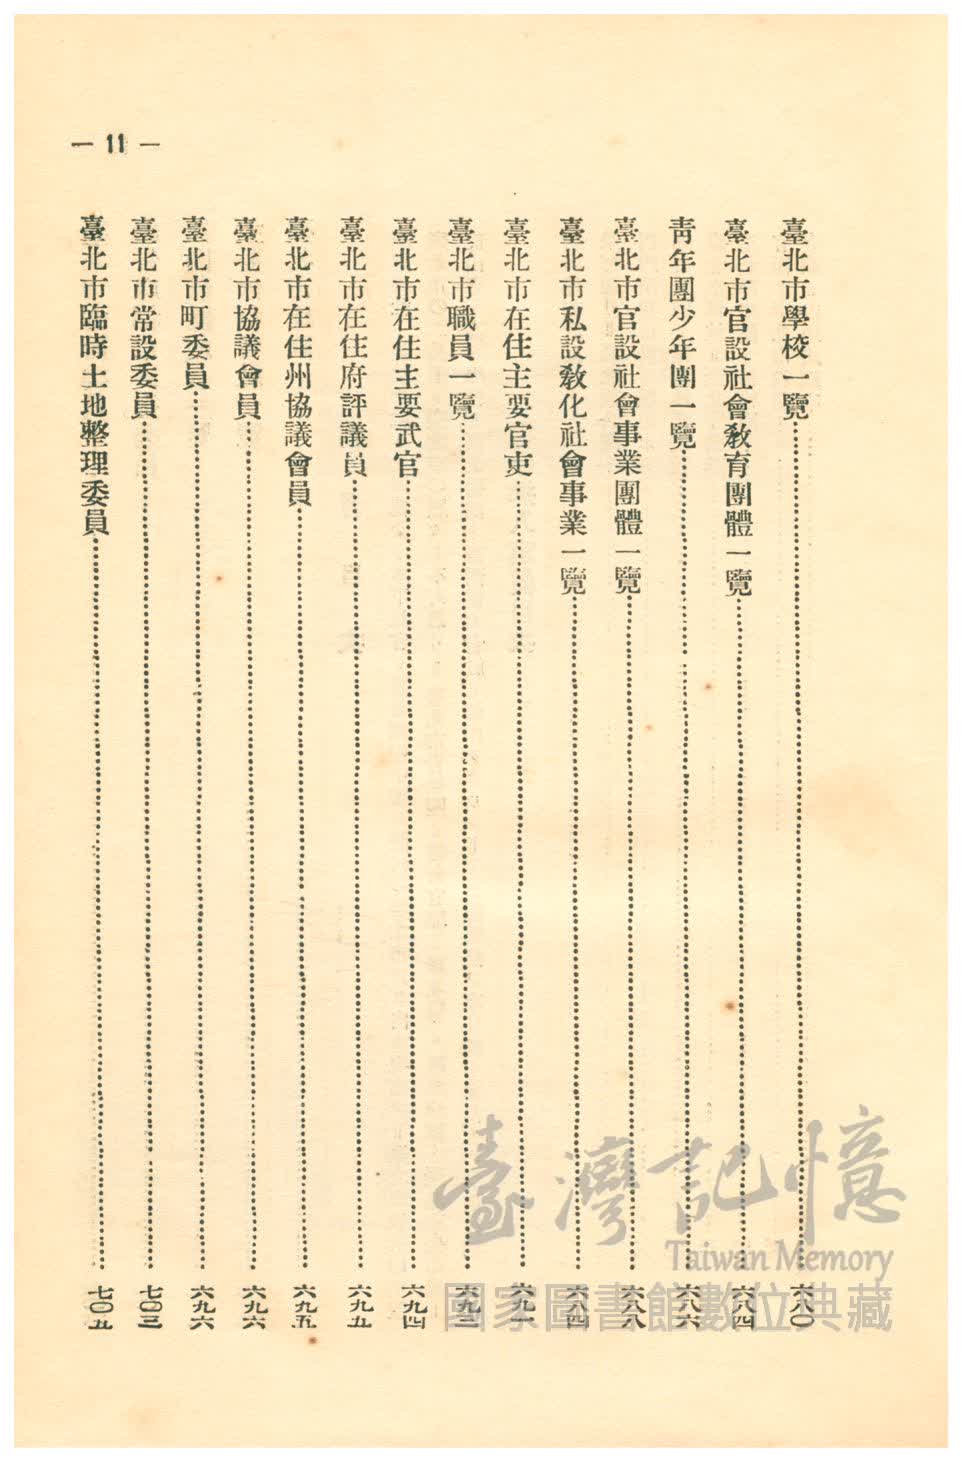 — 11 —
臺北市學校一覽……六八〇
臺北市官設社會敎育團體一覽……六八四
靑年團少年團一覽……六八六
臺北市官設社會事業團體一覽……六八八
臺北市私設敎化社會事業一覽……六八四
臺北市在住主要官吏……六九一
臺北市職員一覽……六九三
臺北市在住主要武官……六九四
臺北市在住府評議員……六九五
臺北市在住州協議會員……六九五
臺北市協議會員……六九六
臺北市町委員……六九六
臺北市常設委員……七〇三
臺北市臨時土地整理委員……七〇五
臺灣記憶
Taiwan Memory
國家圖書館數位典藏